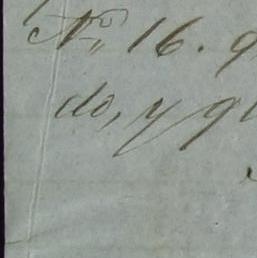 Nº 16. q
do, y q